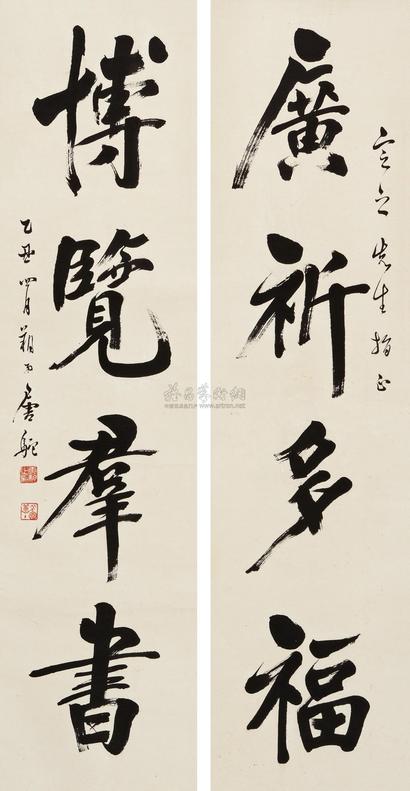 廣祈多福
定之先生指正
博覽羣書
乙丑四月
唐駝